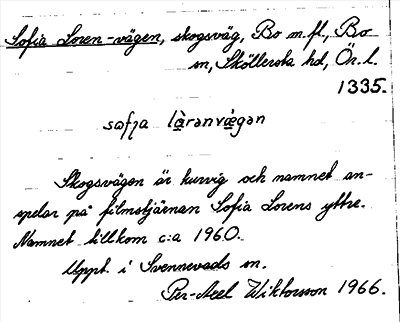 Sofia Loren-vägen, skogsväg, Bo m.fl., Bo
sn, Sköllersta hd, Ör. l.
1335.
sɷfɩa lå̀rənvæ̀gən
Skogsvägen är kurvig och namnet an-
spelar på filmstjärnan Sofia Lorens yttre.
Namnet tillkom c:a 1960.
Uppt. i Svennevads sn.
Per-Axel Wiktorsson 1966.